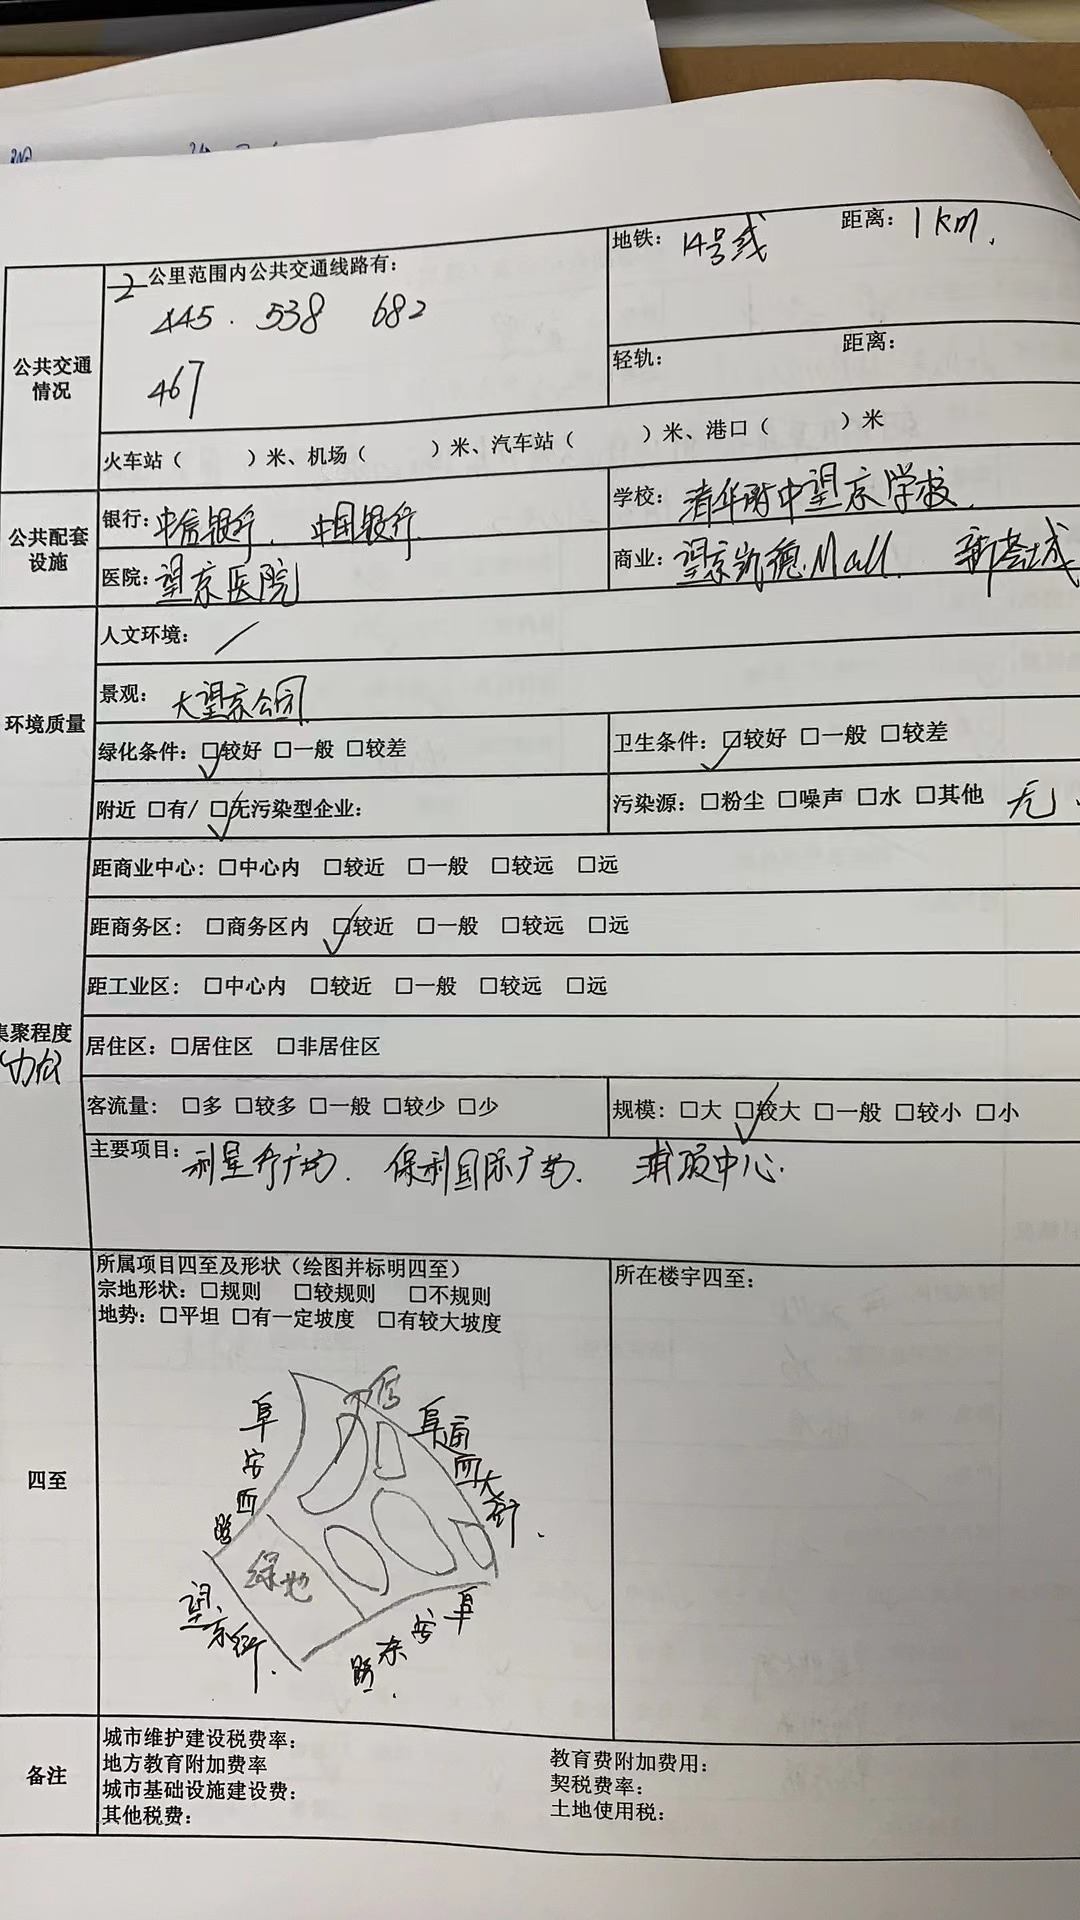 地铁：14号线 距离：1km.
公共交通情况
2公里范围内公共交通线路有：
445. 538 682
467
轻轨： 距离：
火车站（ ）米、机场（ ）米、汽车站（ ）米、港口（ ）米
公共配套设施
银行：中信银行. 中国银行.
学校：清华附中望京学校.
医院：望京医院
商业：望京凯德Mall. 新荟城
环境质量
人文环境：/
景观：大望京公园
绿化条件：☑较好 □一般 □较差
卫生条件：☑较好 □一般 □较差
附近 □有/ ☑无污染型企业：
污染源：□粉尘 □噪声 □水 □其他 无
集聚程度
(办公)
距商业中心：□中心内 □较近 □一般 □较远 □远
距商务区： □商务区内 ☑较近 □一般 □较远 □远
距工业区： □中心内 □较近 □一般 □较远 □远
居住区：□居住区 □非居住区
客流量： □多 □较多 □一般 □较少 □少
规模：□大 ☑较大 □一般 □较小 □小
主要项目：利星行广场. 保利国际广场. 浦项中心.
四至
所属项目四至及形状（绘图并标明四至）
宗地形状：□规则 □较规则 □不规则
地势：□平坦 □有一定坡度 □有较大坡度
所在楼宇四至：
阜安西路
阜通西大街.
绿地
望京街.
阜安东路.
备注
城市维护建设税费率：
地方教育附加费率
城市基础设施建设费：
其他税费：
教育费附加费用：
契税费率：
土地使用税：